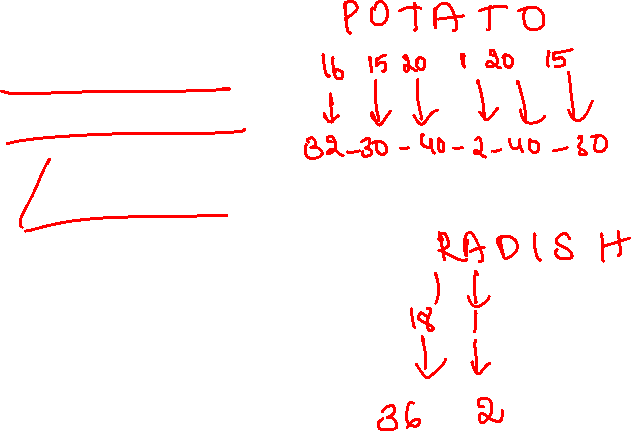 POTATO
16 15 20 1 20 15
32-30-40-2-40-30
RADISH
18 1
36 2